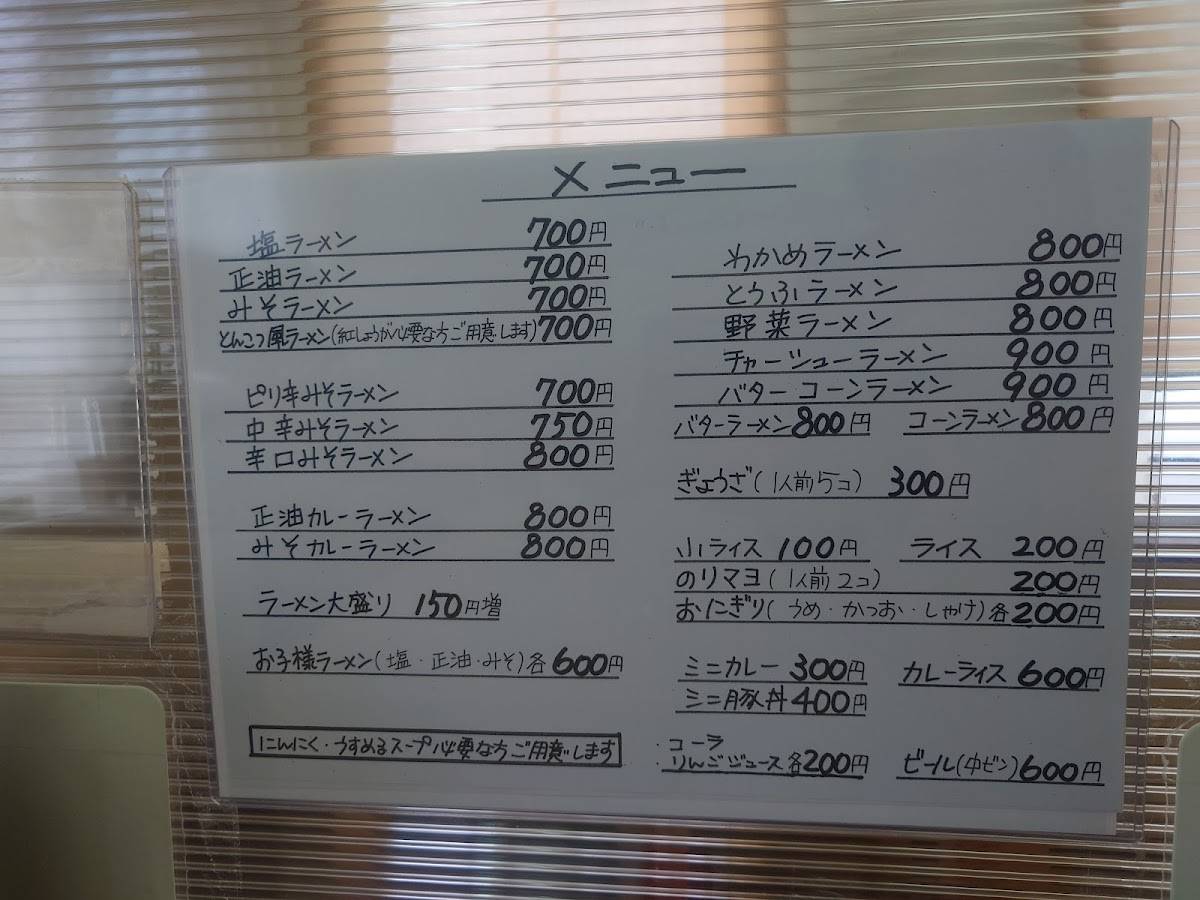 メニュー
塩ラーメン 700円
正油ラーメン 700円
みそラーメン 700円
とんこつ風ラーメン(紅しょうが必要な方ご用意します) 700円
ピリ辛みそラーメン 700円
中辛みそラーメン 750円
辛口みそラーメン 800円
正油カレーラーメン 800円
みそカレーラーメン 800円
ラーメン大盛り 150円増
お子様ラーメン(塩・正油・みそ)各600円
にんにく・うすめるスープ必要な方ご用意します
わかめラーメン 800円
とうふラーメン 800円
野菜ラーメン 800円
チャーシューラーメン 900円
バターコーンラーメン 900円
バターラーメン 800円 コーンラーメン 800円
ぎょうざ(1人前5コ) 300円
小ライス 100円 ライス 200円
のりマヨ(1人前2コ) 200円
おにぎり(うめ・かつお・しゃけ)各200円
ミニカレー 300円 カレーライス 600円
ミニ豚丼 400円
・コーラ
・りんごジュース 各200円 ビール(中ビン)600円